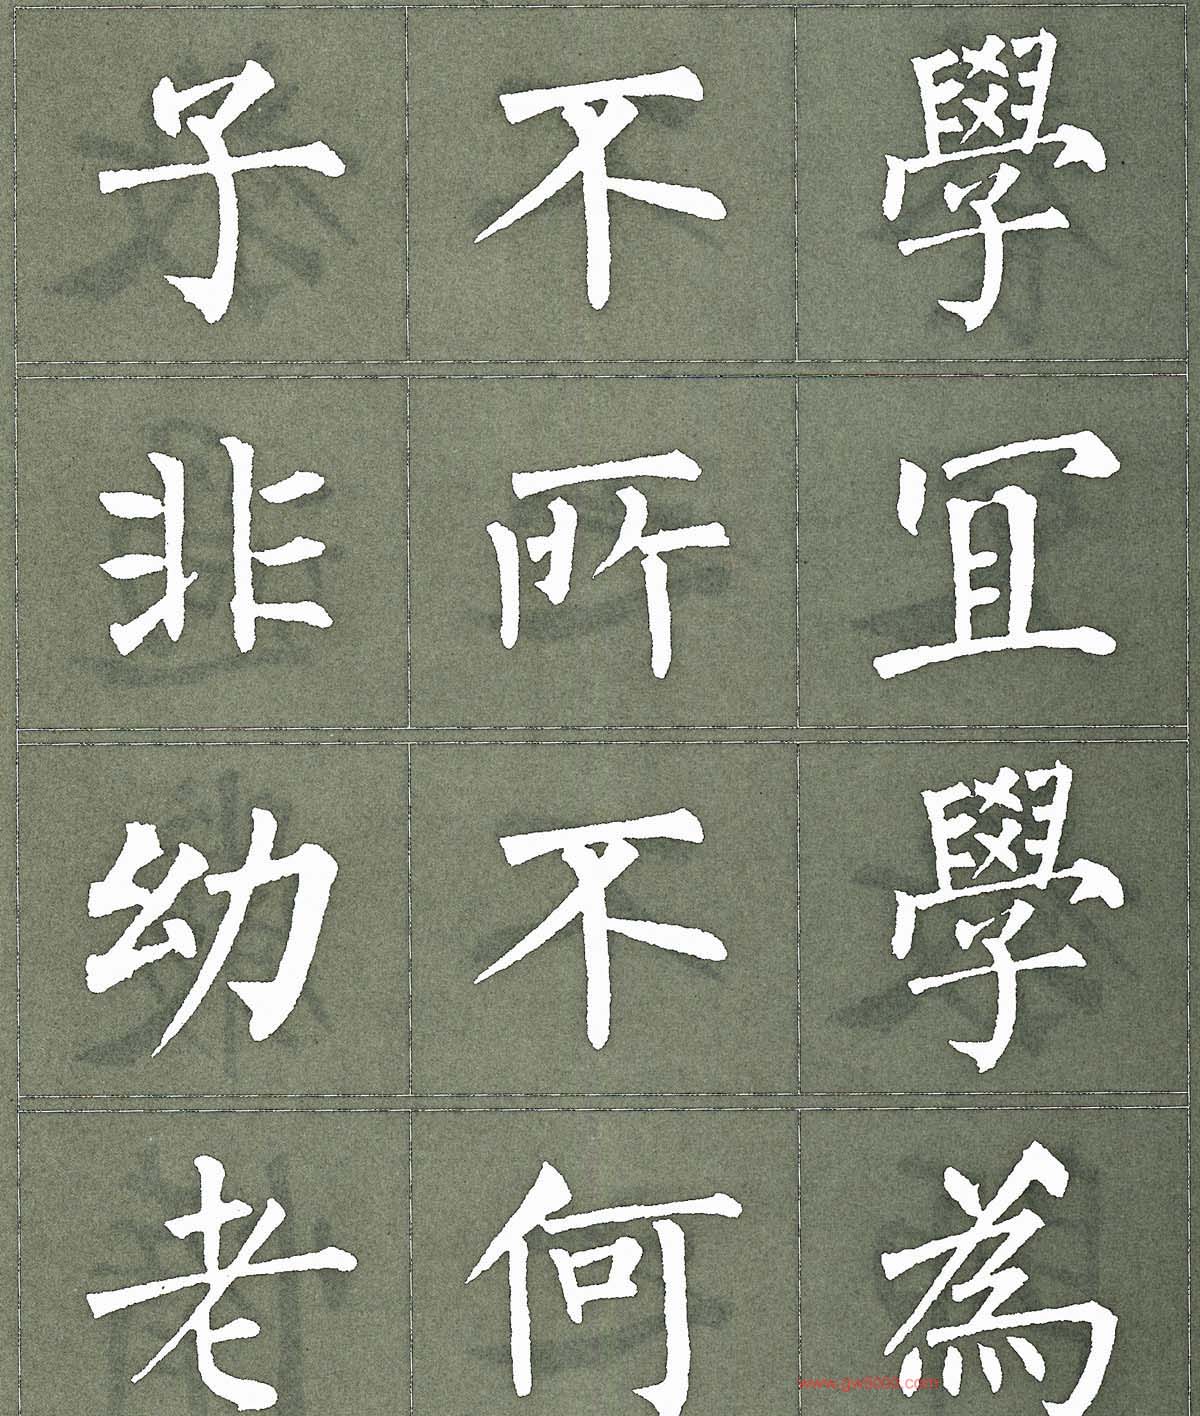 子不學
非所冝
幼不學
老何為
www.gw3000.com